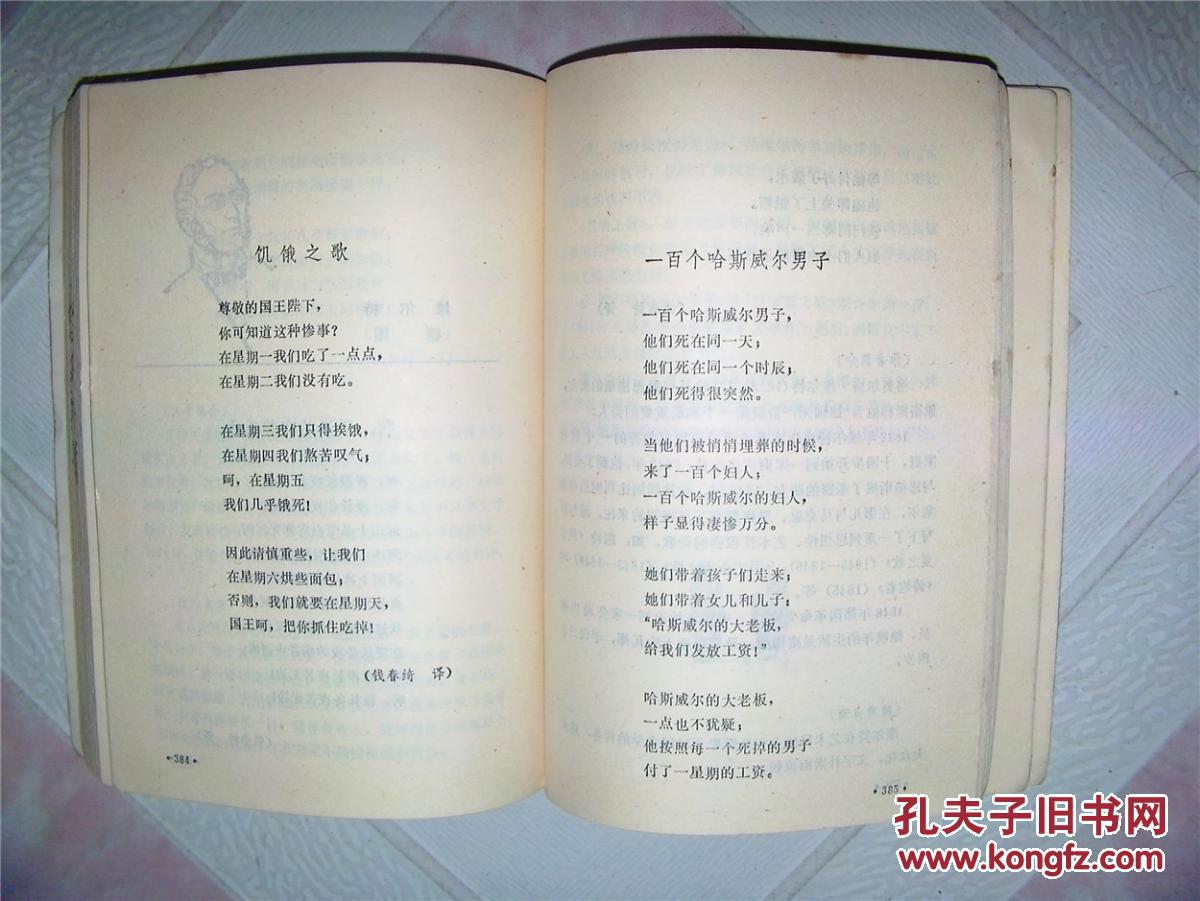 饥饿之歌
尊敬的国王陛下，
你可知道这种惨事？
在星期一我们吃了一点点，
在星期二我们没有吃。
在星期三我们只得挨饿，
在星期四我们熬苦叹气；
呵，在星期五
我们几乎饿死！
因此请慎重些，让我们
在星期六烘些面包；
否则，我们就要在星期天，
国王呵，把你抓住吃掉！
（钱春绮 译）
·384·
一百个哈斯威尔男子
一百个哈斯威尔男子，
他们死在同一天；
他们死在同一个时辰；
他们死得很突然。
当他们被悄悄埋葬的时候，
来了一百个妇人；
一百个哈斯威尔的妇人，
样子显得凄惨万分。
她们带着孩子们走来；
她们带着女儿和儿子：
“哈斯威尔的大老板，
给我们发放工资！”
哈斯威尔的大老板，
一点也不犹疑；
他按照每一个死掉的男子
付了一星期的工资。
·385·
孔夫子旧书网
www.kongfz.com